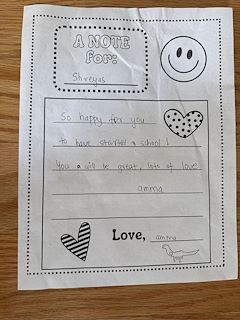 A NOTE
for:
Shreyas
So happy for you
to have started a school!
You a will be great, lots of love
amma
Love, amma